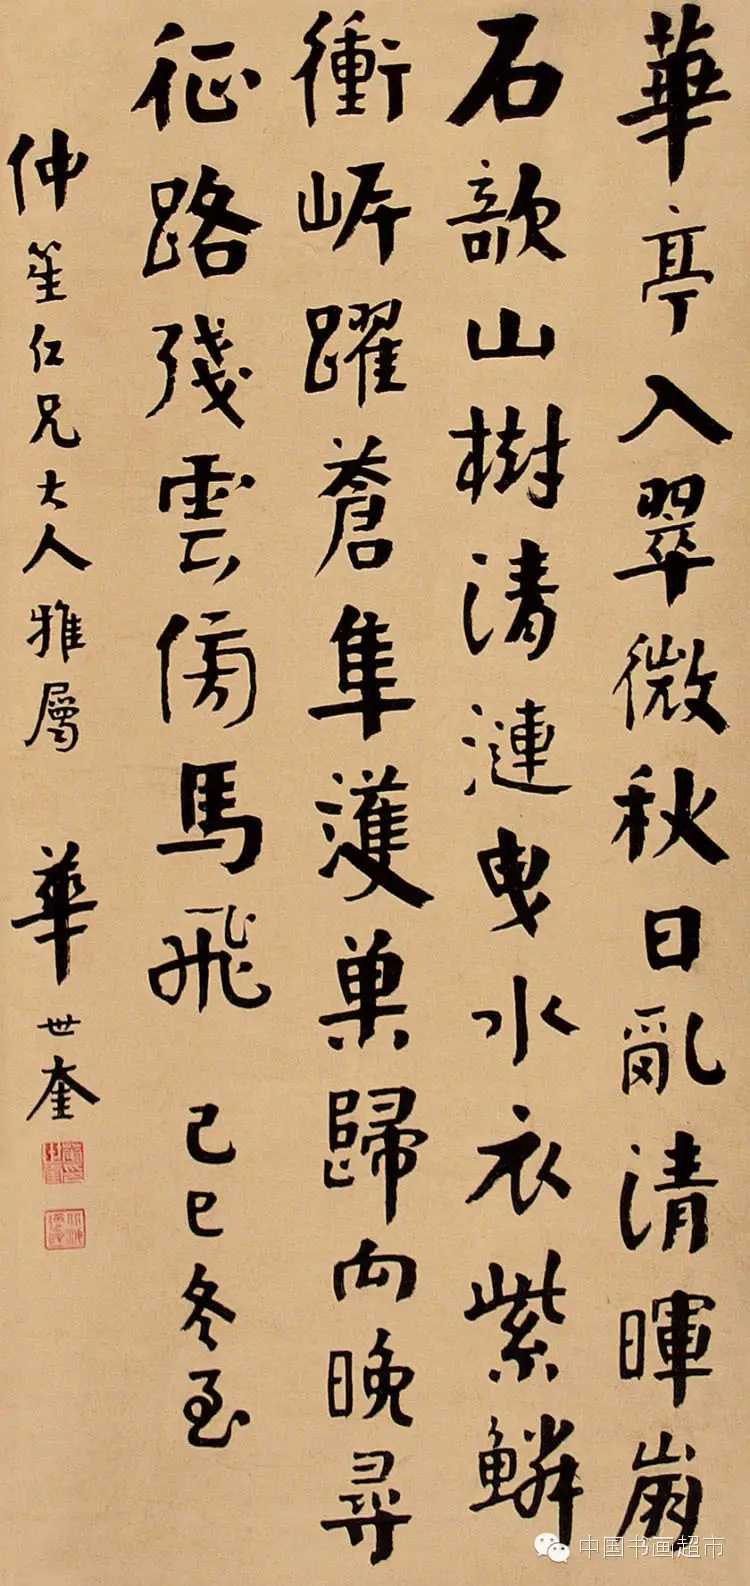 華亭入翠微秋日亂清暉崩
石欹山樹清漣曳水衣紫鱗
衝岸躍蒼隼護巢歸向晚尋
征路殘雲傍馬飛 己巳冬至
仲笙仁兄大人雅屬 華世奎
中国书画超市